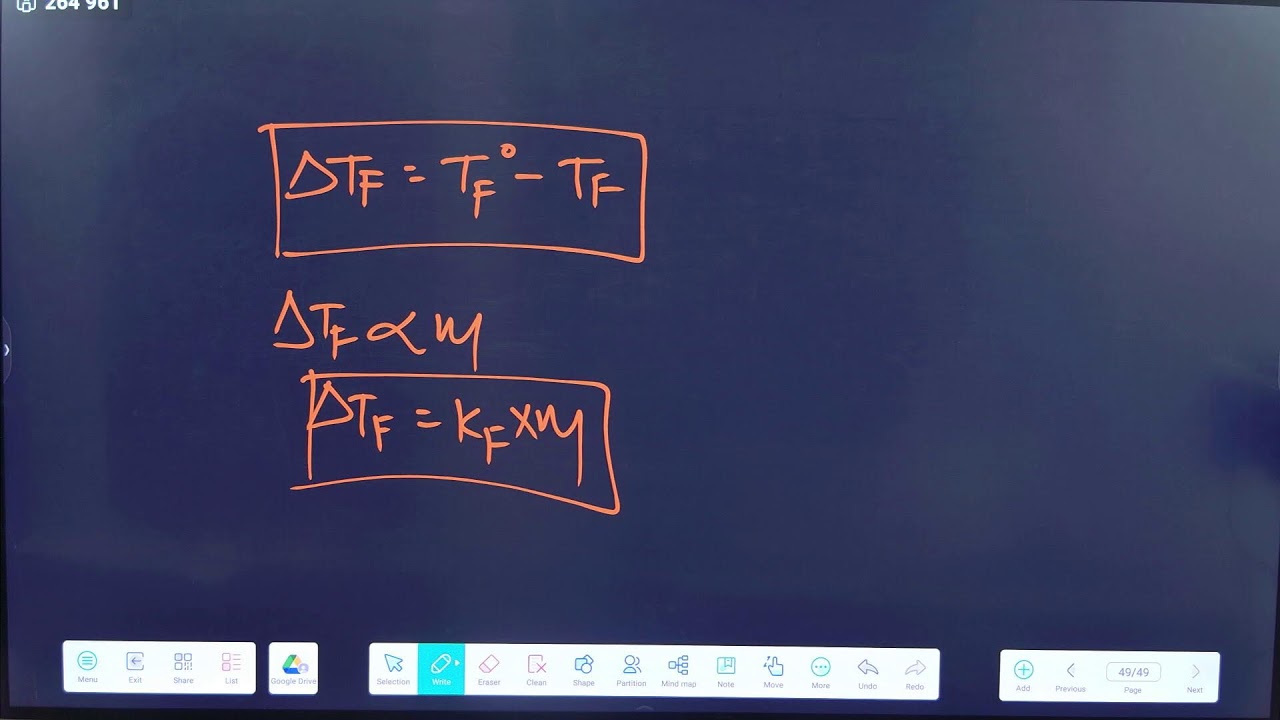 264 961
ΔTF = TF° - TF
ΔTF ∝ m
ΔTF = KF × m
Menu
Exit
Share
List
Google Drive
Selection
Write
Eraser
Clean
Shape
Partition
Mind map
Note
Move
More
Undo
Redo
Add
Previous
49/49
Page
Next